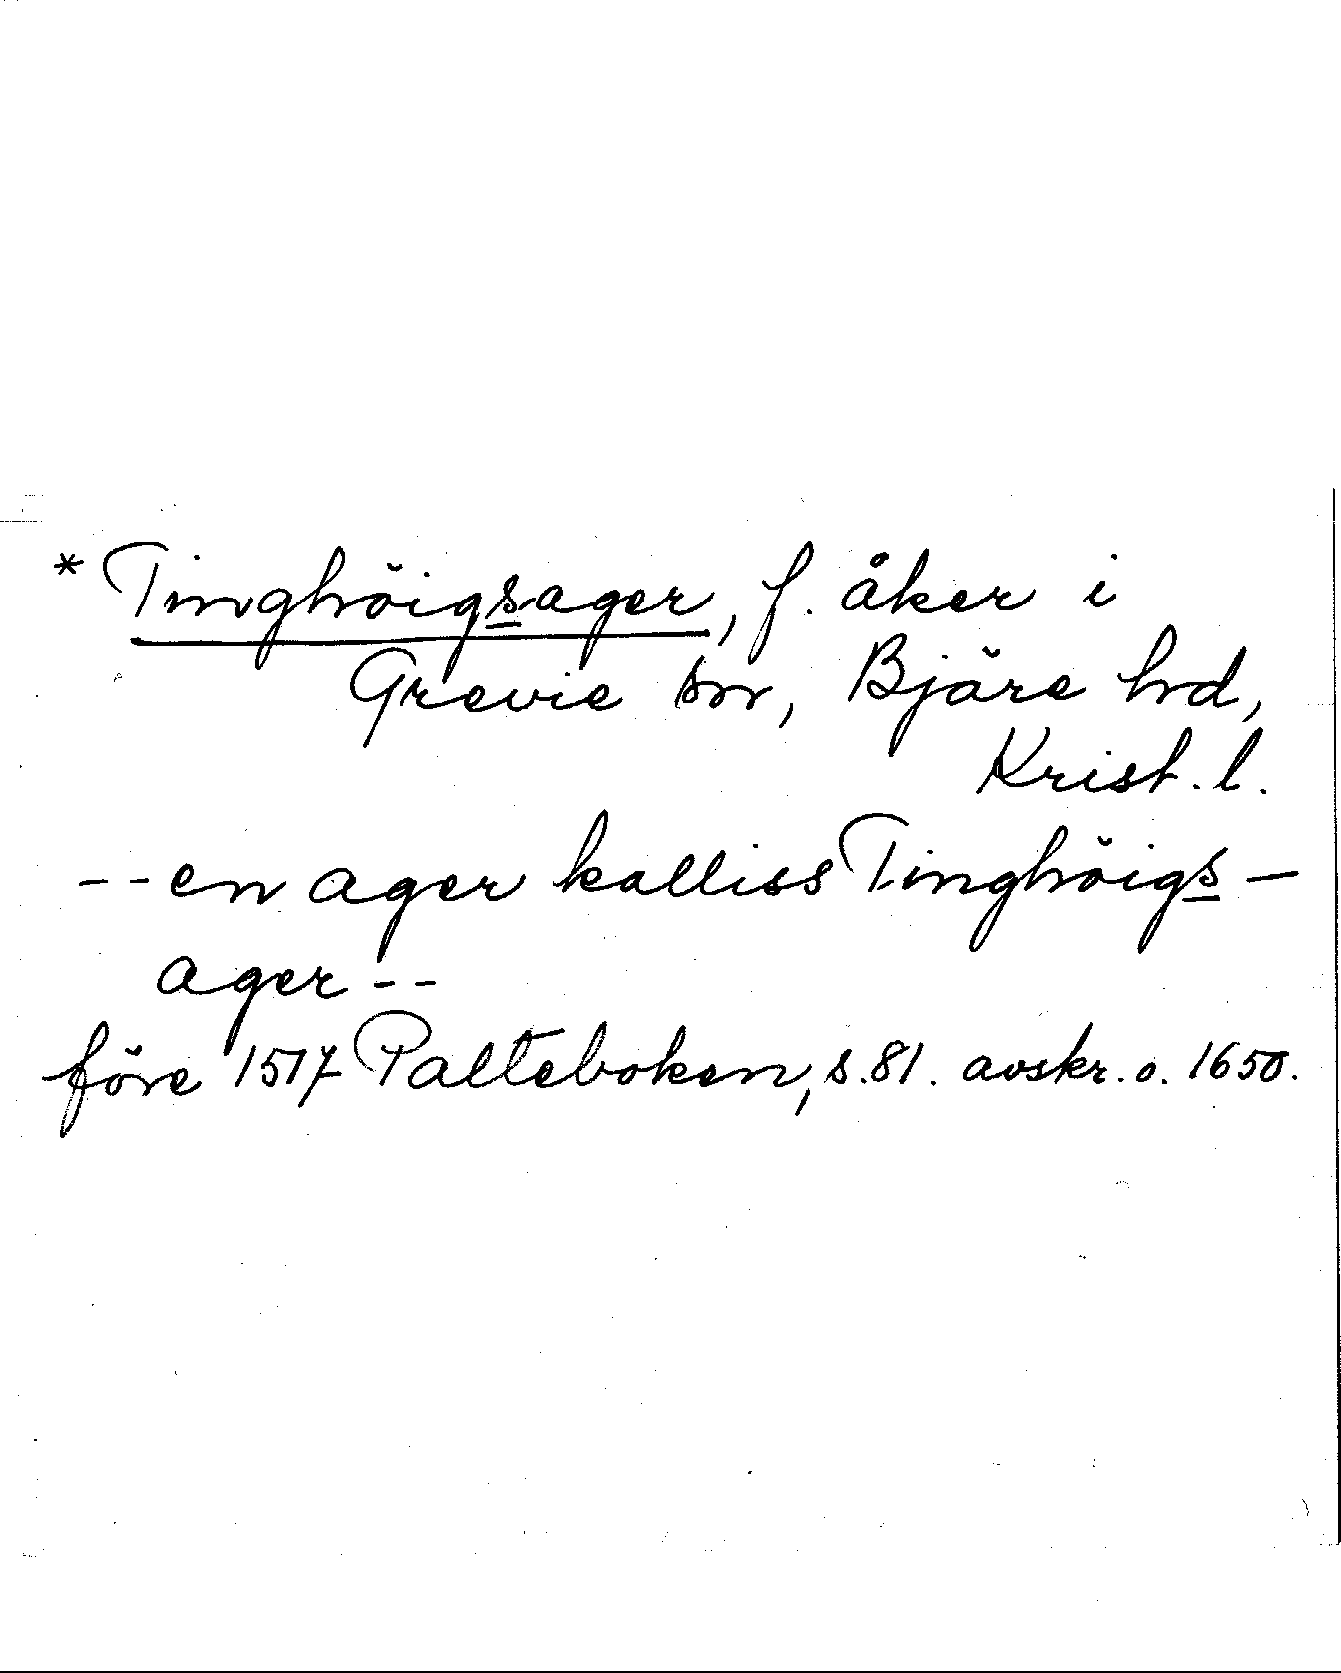 *Tinghöigsager, f. åker i
Grevie sn, Bjäre hd,
Krist. l.
--en ager kalliss Tinghöigs-
ager--
före 1517 Palteboken, s.81. avskr. o. 1650.